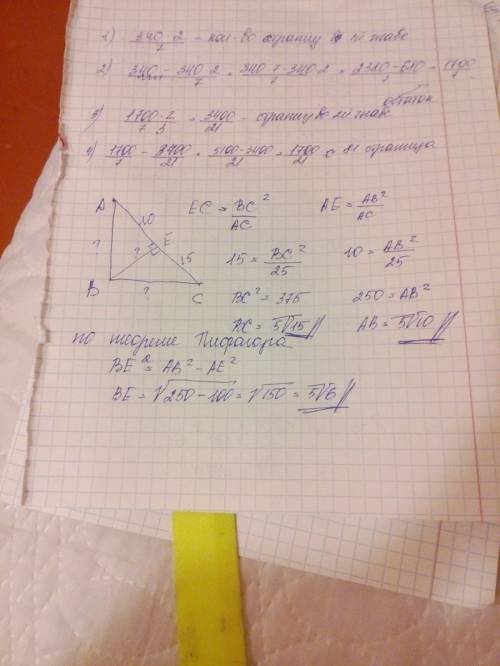 1) 340·2/7 - кол-во страниц в главе
2) 340 - 340·2/7 = 340·7-340·2/7 = 2380-680/7 = 1700/7
остаток
3) 1700·2/7·3 = 3400/21 - страниц во главе
4) 1700/7 - 3400/21 = 5100-3400/21 = 1700/21 страница
A 10 EC = BC²/AC AE = AB²/AC
? ? E 15 15 = BC²/25 10 = AB²/25
B ? C BC² = 375 250 = AB²
BC = 5√15 AB = 5√10
по теореме Пифагора
BE² = AB² - AE²
BE = √250-100 = √150 = 5√6